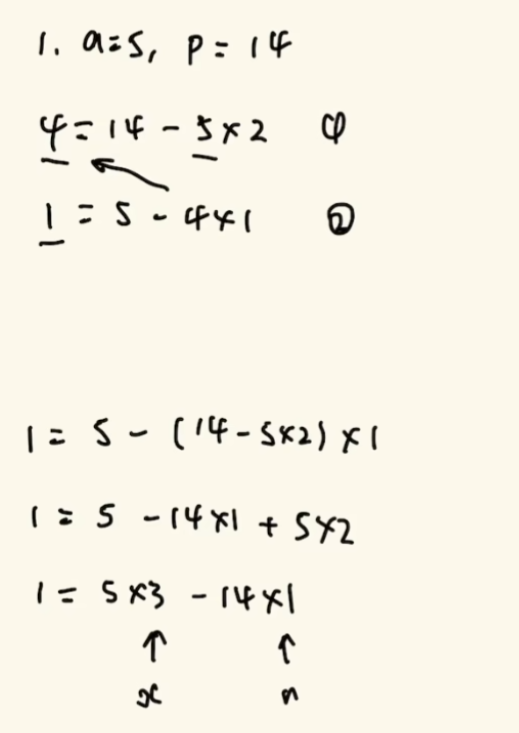 1. a=5, p=14
4=14-5×2 ①
1=5-4×1 ②
1=5-(14-5×2)×1
1=5-14×1+5×2
1=5×3-14×1
↑ ↑
x n